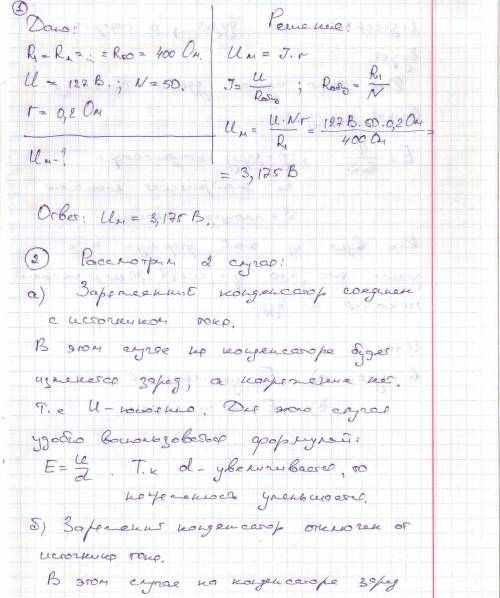 1
Дано:
R₁ = R₂ = ... = R₅₀ = 400 Ом.
U = 127 В.; N = 50.
r = 0,2 Ом
Uм - ?
Решение:
Uм = J·r
J = U/Rобщ ; Rобщ = R₁/N
Uм = U·Nr/R₁ = 127 В·50·0,2 Ом/400 Ом =
= 3,175 В
Ответ: Uм = 3,175 В.
2 Рассмотрим 2 случая:
а) Заряженный конденсатор соединен
с источником тока.
В этом случае на конденсаторе будет
изменятся заряд, а напряжение нет.
Т.е U - постоянно. Для этого случая
удобно воспользоваться формулой:
E = U/d . Т.к d - увеличивается, то
напряженность уменьшается.
б) Заряженный конденсатор отключен от
источника тока.
В этом случае на конденсаторе заряд